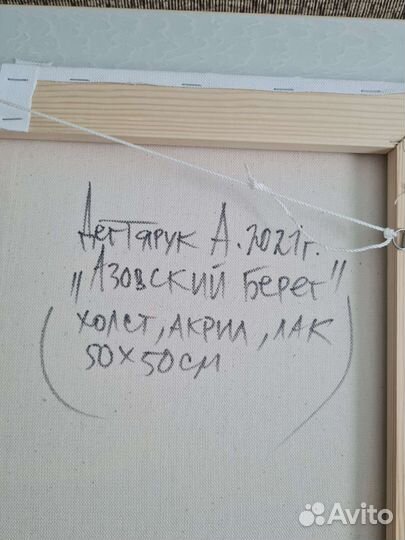 Дегтярук А. 2021г.
"Азовский берег"
холст, акрил, лак
50×50см
Avito